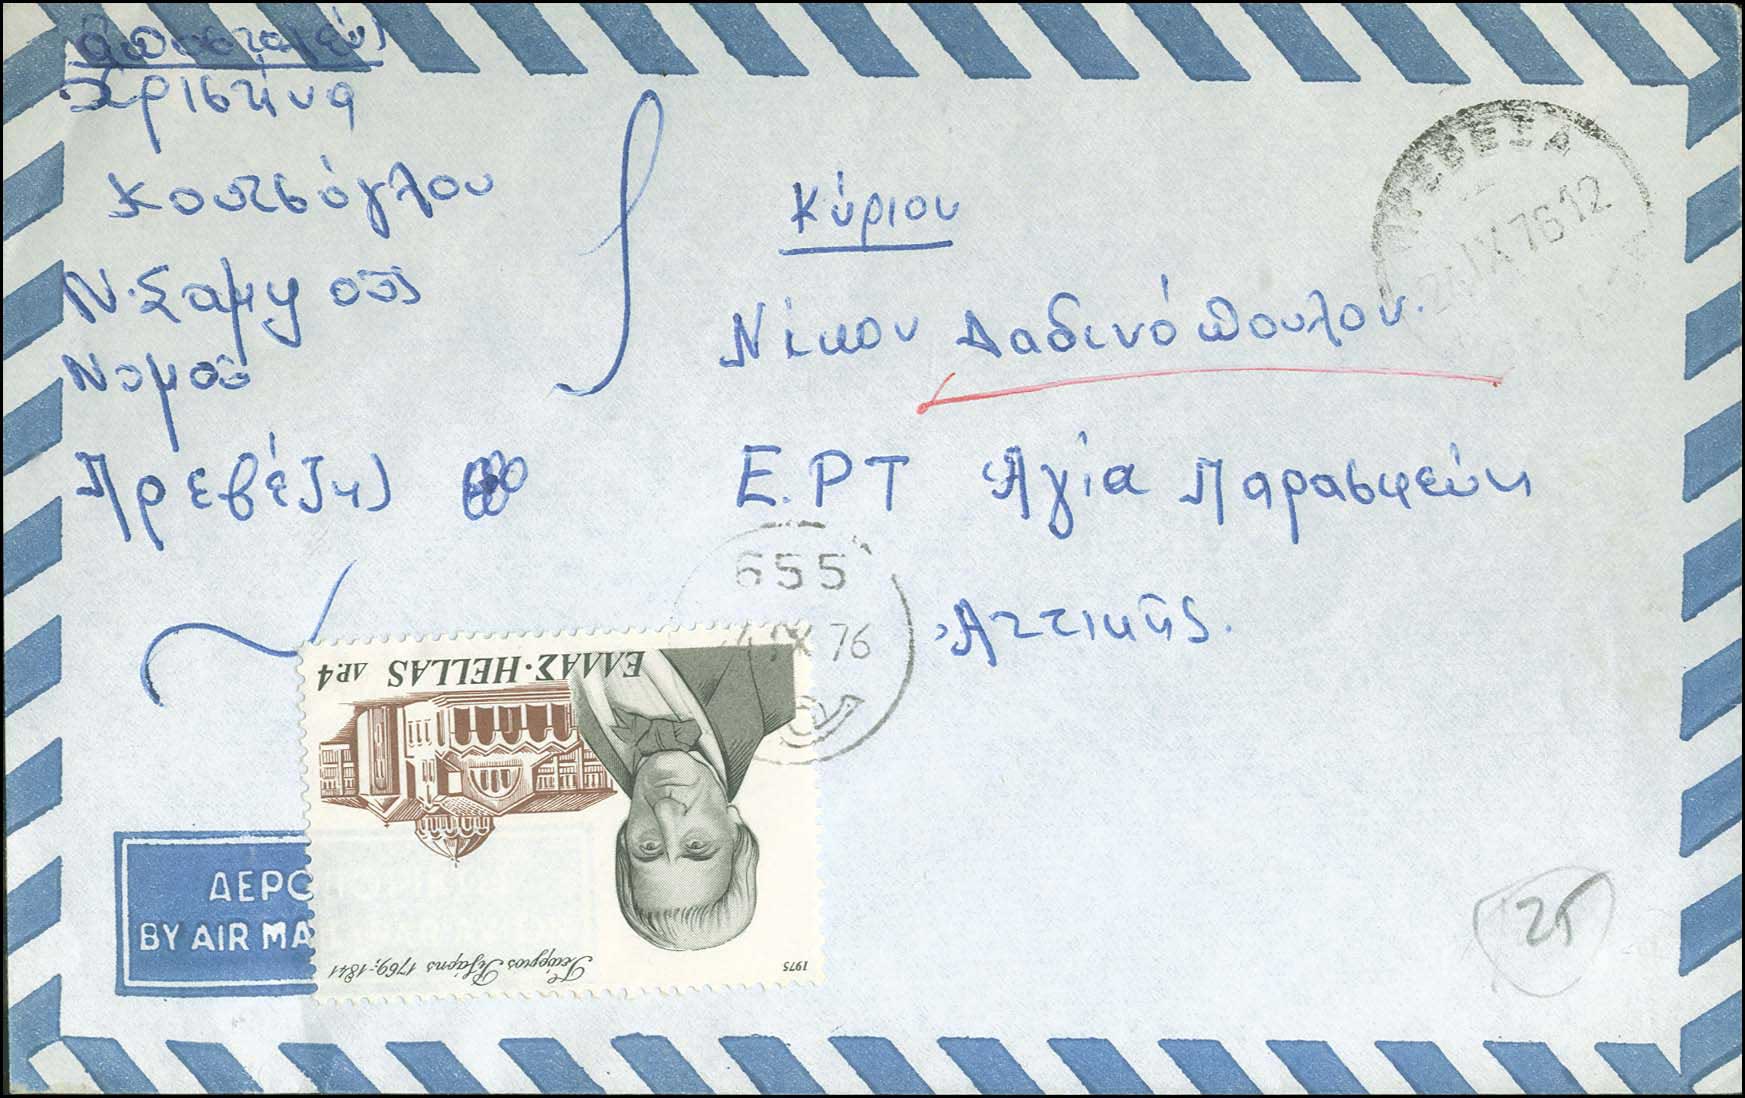 Χριστίνα
Κουτσόγλου
Ν. Σαμψούς
Νομού
Πρεβέζης
Κύριου
Νίκου Δαδινόπουλου.
Ε.ΡΤ Αγία Παρασκευή
Αττικής.
ΠΡΕΒΕΖΑ
IX 76 12
655
IX 76
ΕΛΛΑΣ·HELLAS ΔΡ.4
Γεώργιος Ριζάρης 1769-1841
1975
ΑΕΡΟ
BY AIR MA
25